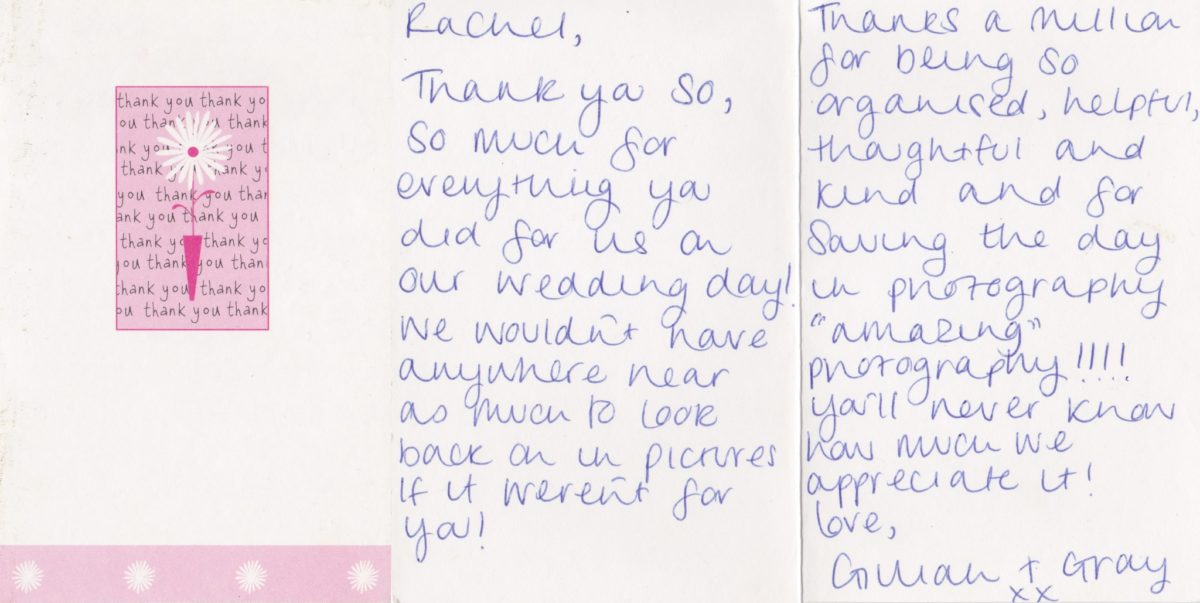 thank you thank yo
ou thank you thank
nk you thank you t
thank you thank y
you thank you than
ank you thank you
thank you thank yo
you thank you than
thank you thank yo
ou thank you thank
Rachel,
Thank you so,
so much for
everything you
did for us on
our wedding day!
We wouldn't have
anywhere near
as much to look
back on in pictures
if it weren't for
you!
Thanks a million
for being so
organised, helpful,
thoughtful and
kind and for
saving the day
in photography
"amazing"
photography!!!!
You'll never know
how much we
appreciate it!
Love,
Gillian + Gray
xx